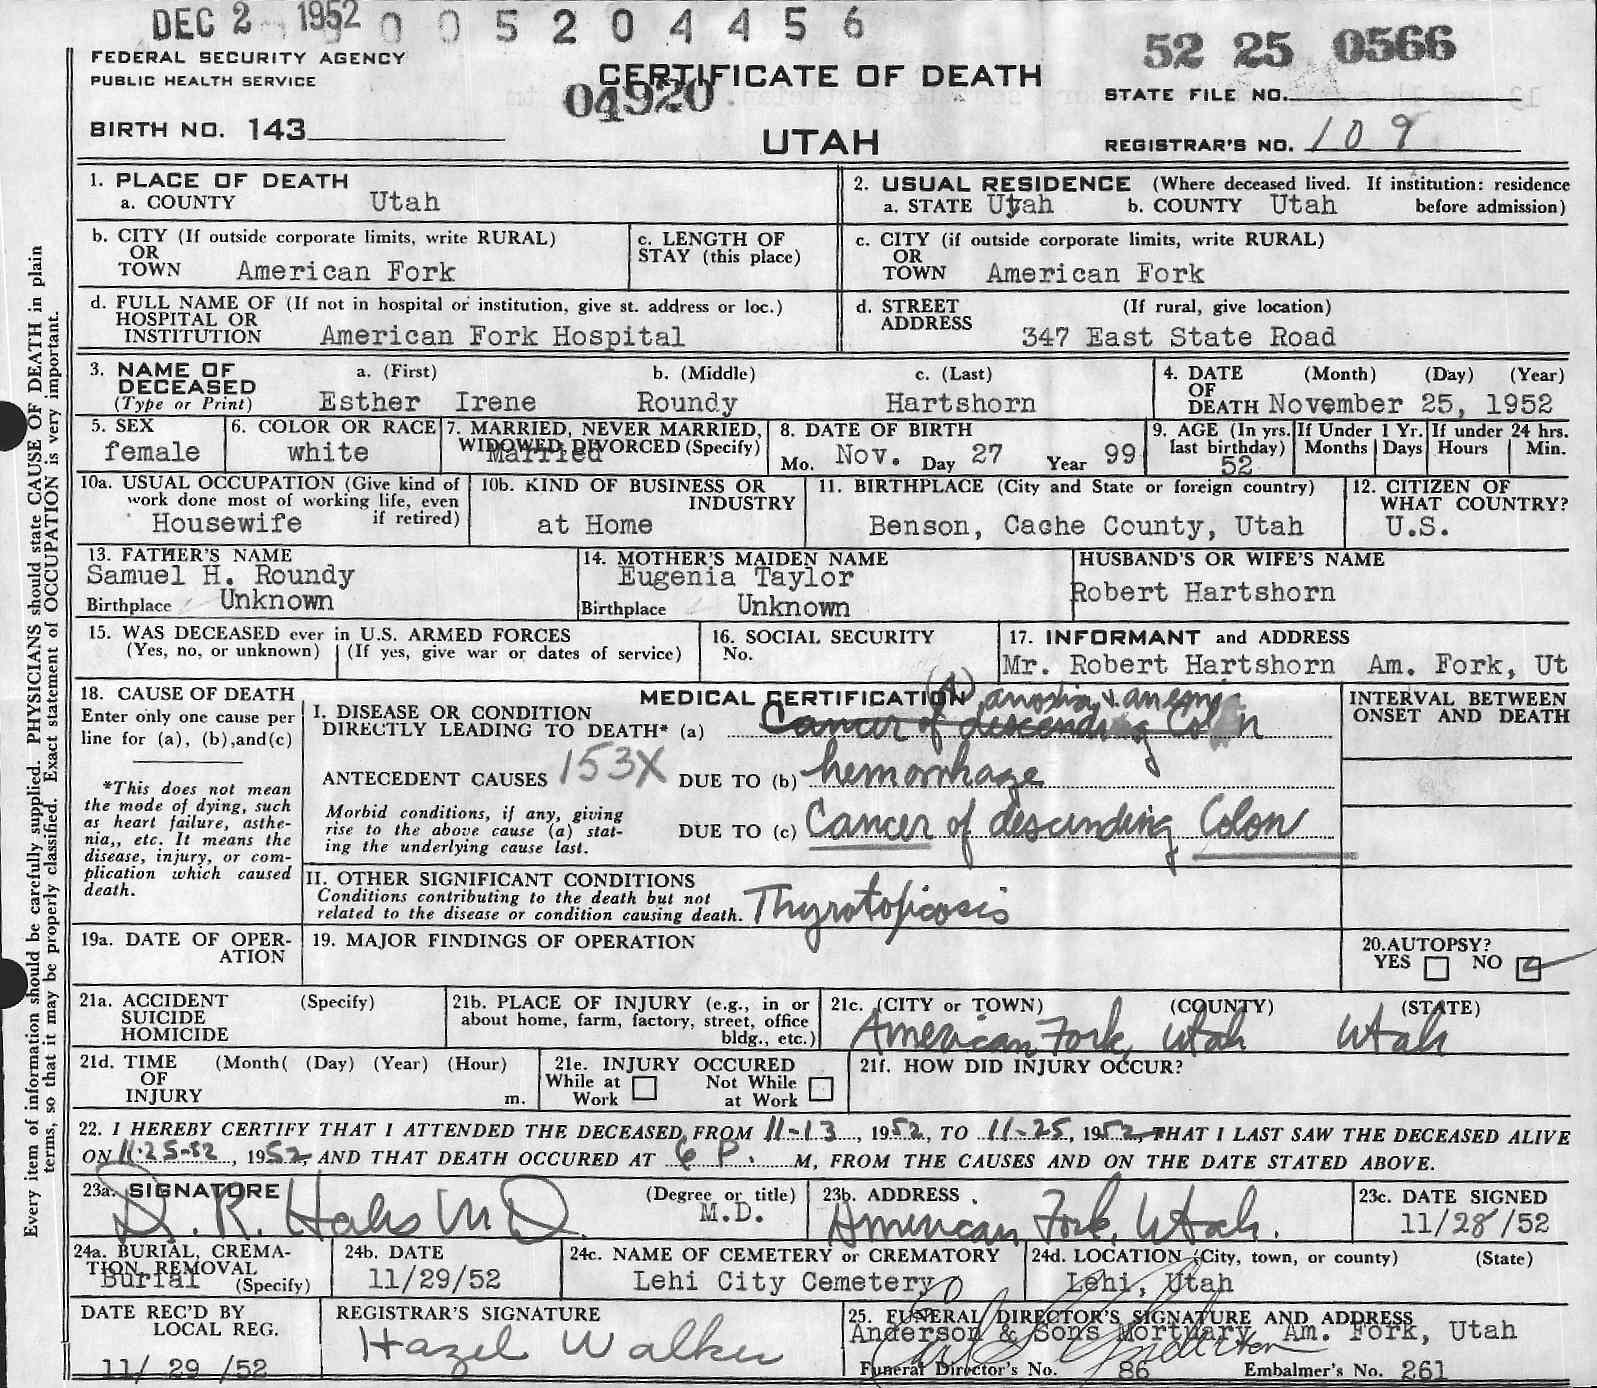 DEC 2 1952 0 0 5 2 0 4 4 5 6
52 25 0566
FEDERAL SECURITY AGENCY
PUBLIC HEALTH SERVICE
CERTIFICATE OF DEATH
04920
STATE FILE NO.
BIRTH NO. 143
UTAH
REGISTRAR'S NO. 109
1. PLACE OF DEATH
a. COUNTY Utah
2. USUAL RESIDENCE (Where deceased lived. If institution: residence
a. STATE Utah b. COUNTY Utah before admission)
b. CITY (If outside corporate limits, write RURAL)
OR
TOWN American Fork
c. LENGTH OF
STAY (this place)
c. CITY (if outside corporate limits, write RURAL)
OR
TOWN American Fork
d. FULL NAME OF (If not in hospital or institution, give st. address or loc.)
HOSPITAL OR
INSTITUTION American Fork Hospital
d. STREET (If rural, give location)
ADDRESS 347 East State Road
3. NAME OF a. (First) b. (Middle) c. (Last)
DECEASED
(Type or Print) Esther Irene Roundy Hartshorn
4. DATE (Month) (Day) (Year)
OF
DEATH November 25, 1952
5. SEX
female
6. COLOR OR RACE
white
7. MARRIED, NEVER MARRIED,
WIDOWED, DIVORCED (Specify)
Married
8. DATE OF BIRTH
Mo. Nov. Day 27 Year 99
9. AGE (In yrs.
last birthday)
52
If Under 1 Yr.
Months Days
If under 24 hrs.
Hours Min.
10a. USUAL OCCUPATION (Give kind of
work done most of working life, even
if retired)
Housewife
10b. KIND OF BUSINESS OR
INDUSTRY
at Home
11. BIRTHPLACE (City and State or foreign country)
Benson, Cache County, Utah
12. CITIZEN OF
WHAT COUNTRY?
U.S.
13. FATHER'S NAME
Samuel H. Roundy
Birthplace Unknown
14. MOTHER'S MAIDEN NAME
Eugenia Taylor
Birthplace Unknown
HUSBAND'S OR WIFE'S NAME
Robert Hartshorn
15. WAS DECEASED ever in U.S. ARMED FORCES
(Yes, no, or unknown) (If yes, give war or dates of service)
16. SOCIAL SECURITY
No.
17. INFORMANT and ADDRESS
Mr. Robert Hartshorn Am. Fork, Ut
18. CAUSE OF DEATH
Enter only one cause per
line for (a), (b),and(c)
*This does not mean
the mode of dying, such
as heart failure, asthe-
nia,, etc. It means the
disease, injury, or com-
plication which caused
death.
MEDICAL CERTIFICATION
(A) anoxia & anemia
I. DISEASE OR CONDITION
DIRECTLY LEADING TO DEATH* (a) Cancer of descending Colon
ANTECEDENT CAUSES 153X DUE TO (b) hemorrhage
Morbid conditions, if any, giving
rise to the above cause (a) stat-
ing the underlying cause last.
DUE TO (c) Cancer of descending Colon
INTERVAL BETWEEN
ONSET AND DEATH
II. OTHER SIGNIFICANT CONDITIONS
Conditions contributing to the death but not
related to the disease or condition causing death. Thyrotoxicosis
19a. DATE OF OPER-
ATION
19. MAJOR FINDINGS OF OPERATION
20.AUTOPSY?
YES NO
21a. ACCIDENT (Specify)
SUICIDE
HOMICIDE
21b. PLACE OF INJURY (e.g., in or
about home, farm, factory, street, office
bldg., etc.)
21c. (CITY or TOWN) (COUNTY) (STATE)
American Fork, Utah Utah
21d. TIME (Month( (Day) (Year) (Hour)
OF
INJURY m.
21e. INJURY OCCURED
While at Not While
Work at Work
21f. HOW DID INJURY OCCUR?
22. I HEREBY CERTIFY THAT I ATTENDED THE DECEASED FROM 11-13, 1952, TO 11-25, 1952, THAT I LAST SAW THE DECEASED ALIVE
ON 11-25-52, 1952, AND THAT DEATH OCCURED AT 6 P. M, FROM THE CAUSES AND ON THE DATE STATED ABOVE.
23a. SIGNATURE (Degree or title)
M.D.
23b. ADDRESS
American Fork, Utah.
23c. DATE SIGNED
11/28/52
24a. BURIAL, CREMA-
TION, REMOVAL
Burial (Specify)
24b. DATE
11/29/52
24c. NAME OF CEMETERY or CREMATORY
Lehi City Cemetery
24d. LOCATION (City, town, or county) (State)
Lehi, Utah
DATE REC'D BY
LOCAL REG.
11/ 29 /52
REGISTRAR'S SIGNATURE
Hazel Walker
25. FUNERAL DIRECTOR'S SIGNATURE AND ADDRESS
Anderson & Sons Mortuary Am. Fork, Utah
Funeral Director's No. 86 Embalmer's No. 261
Every item of information should be carefully supplied. PHYSICIANS should state CAUSE OF DEATH in plain
terms, so that it may be properly classified. Exact statement of OCCUPATION is very important.